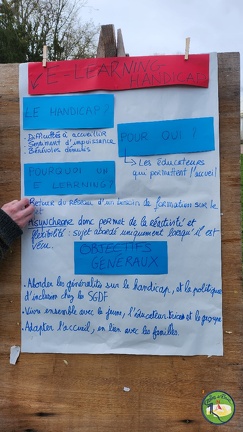 E-LEARNING
HANDICAP
LE HANDICAP?
- Difficultés à accueillir
- Sentiment d'impuissance
- Bénévoles démunis
POUR QUI ?
Les éducateurs
qui permettent l'accueil
POURQUOI UN
E LEARNING?
Retour du réseau d'un besoin de formation sur le
Asynchrone donc permet de la réactivité et
flexibilité : sujet abordé uniquement lorsqu'il est
vécu.
OBJECTIFS
GÉNÉRAUX
- Aborder les généralités sur le handicap, et la politique
d'inclusion chez les SGDF
- Vivre ensemble avec le jeune, l'éducateur.trice et le groupe
- Adapter l'accueil, en lien avec les familles.